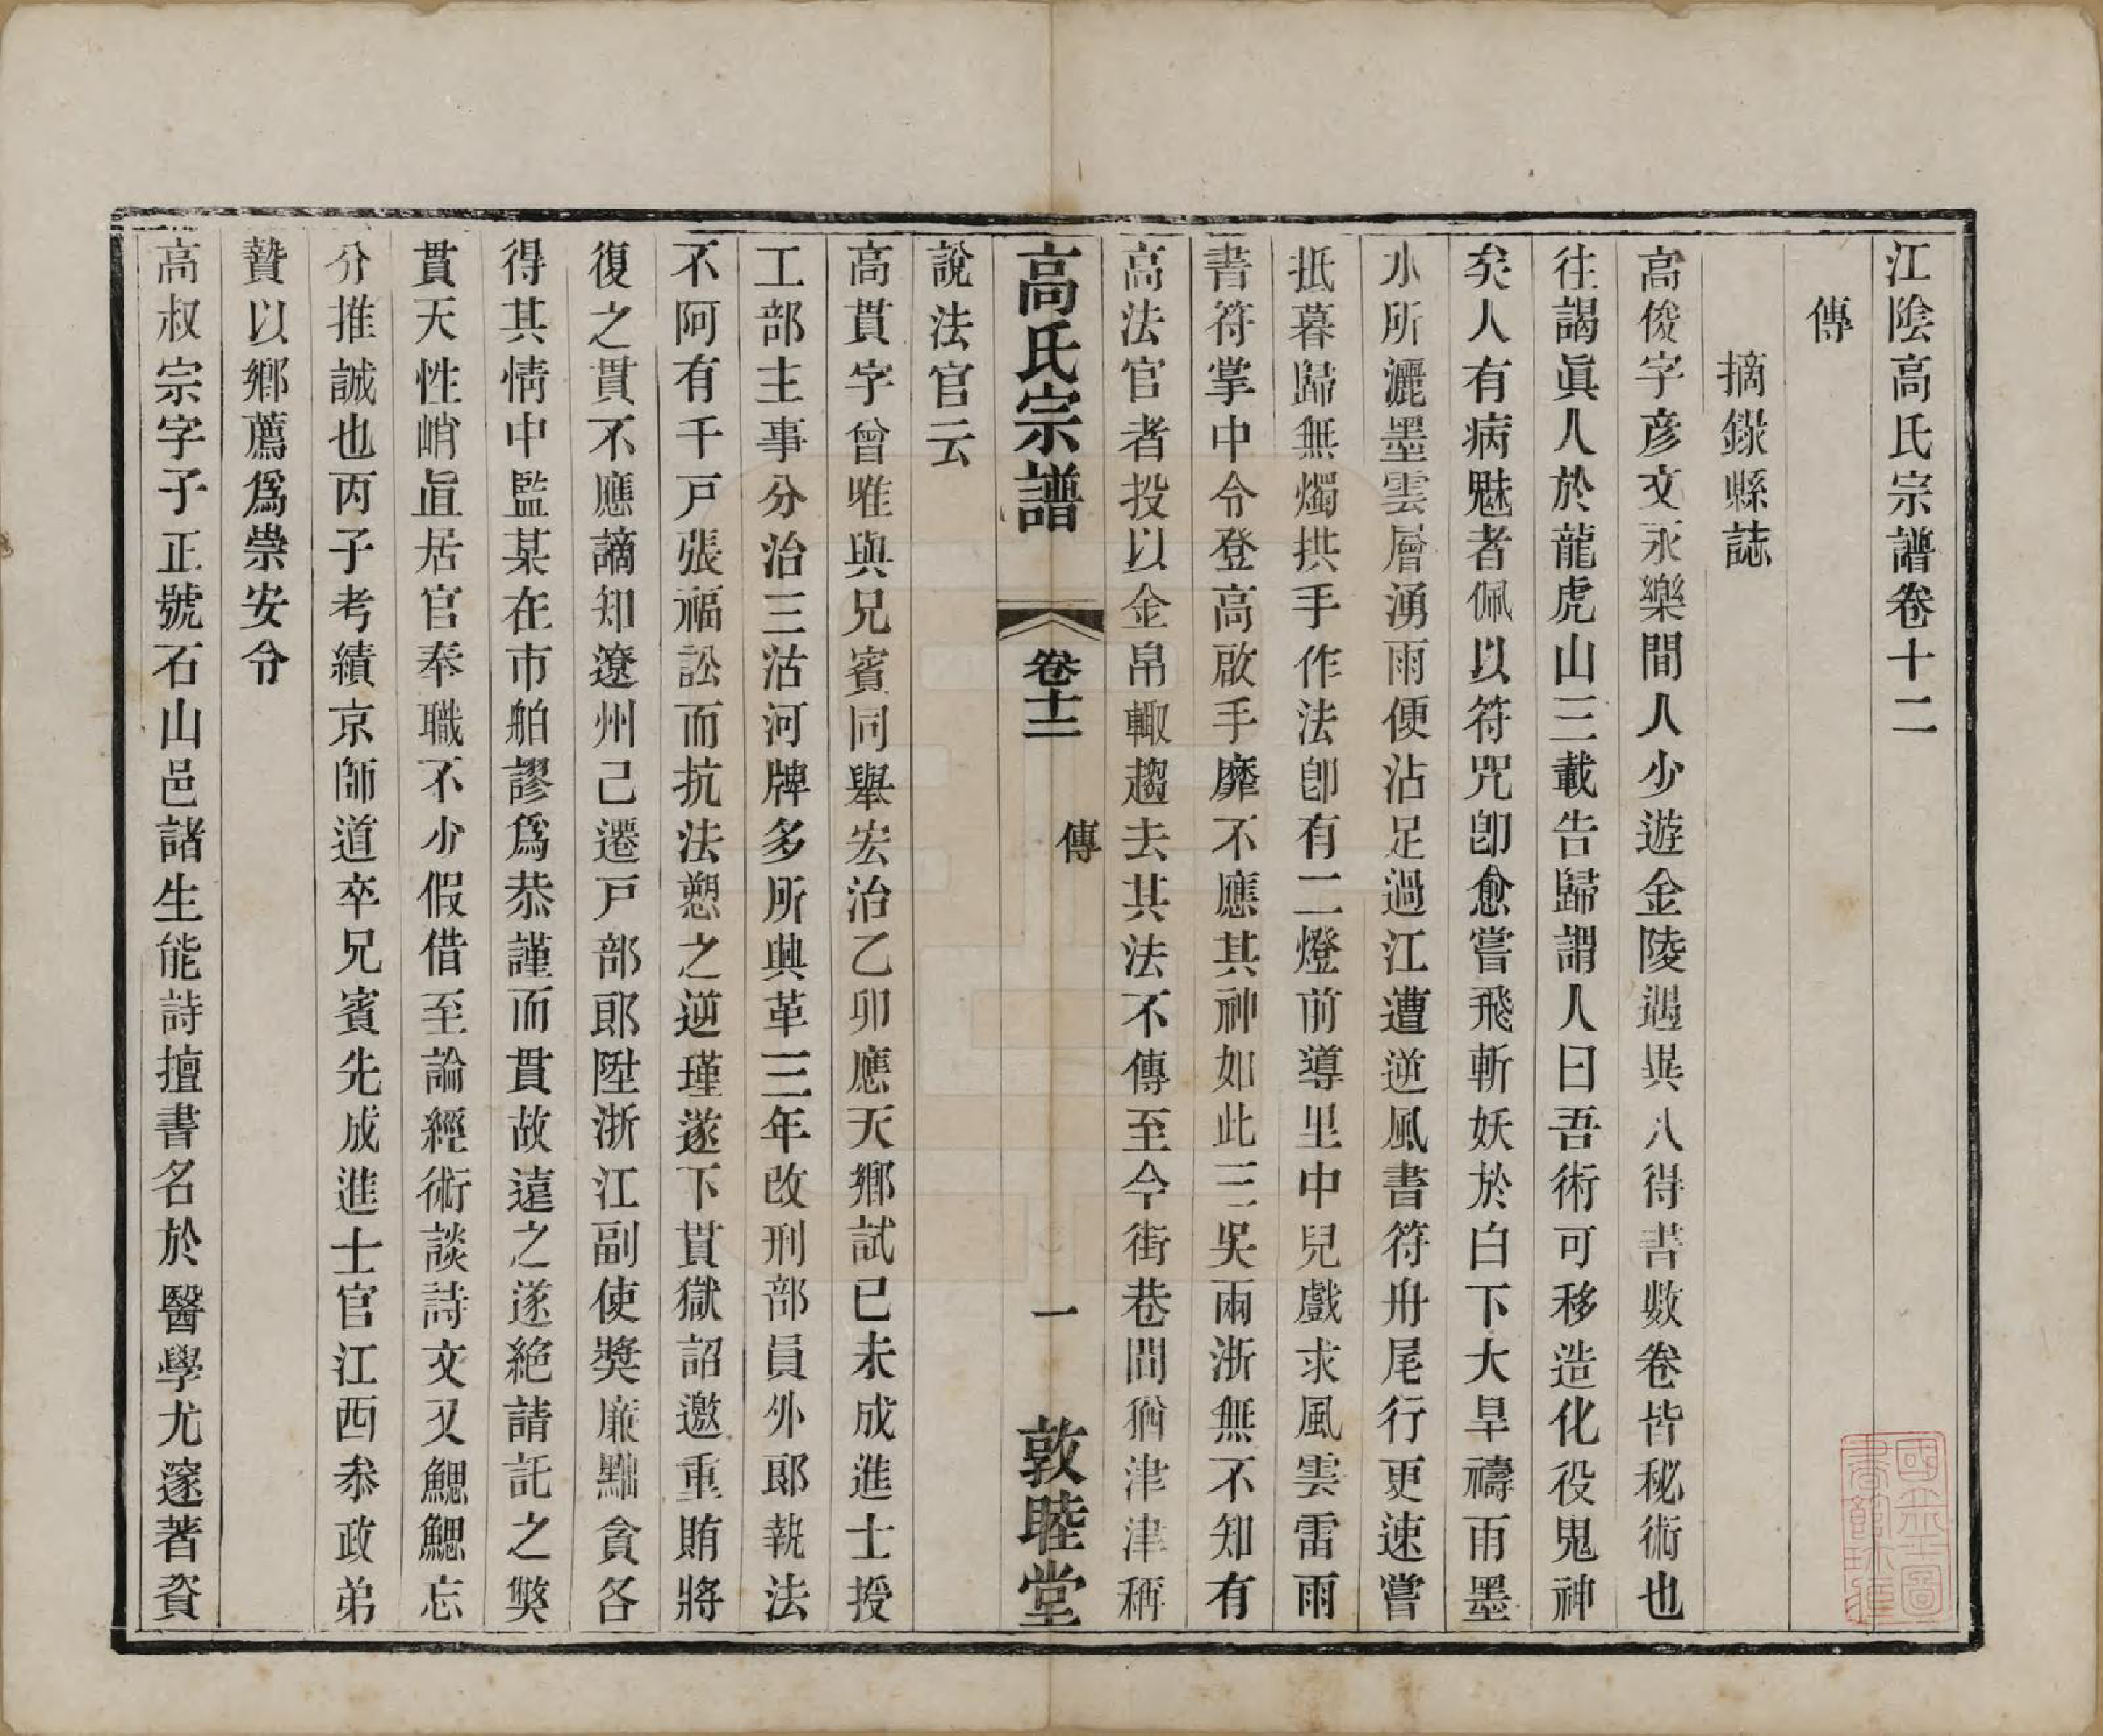 江陰高氏宗譜卷十二
傳
摘錄縣誌
高俊字彥文永樂間人少遊金陵遇異人得書數卷皆秘術也
往謁眞人於龍虎山三載告歸謂人曰吾術可移造化役鬼神
矣人有病魅者佩以符咒卽愈嘗飛斬妖於白下大旱禱雨墨
水所灑墨雲層湧雨便沾足過江遭逆風書符舟尾行更速嘗
抵暮歸無燭拱手作法卽有二燈前導里中兒戲求風雲雷雨
書符掌中令登高啟手靡不應其神如此三吳兩浙無不知有
高法官者投以金帛輙趨去其法不傳至今街巷間猶津津稱
高氏宗譜
卷十二
傳
一
敦睦堂
說法官云
高貫字曾唯與兄賓同舉宏治乙卯應天鄉試己未成進士授
工部主事分治三沽河牌多所興革三年改刑部員外郎執法
不阿有千戶張福訟而抗法愬之逆瑾遂下貫獄詔邀重賄將
復之貫不應謫知遼州己遷戶部郎陞浙江副使獎廉黜貪各
得其情中監某在市舶謬爲恭謹而貫故遠之遂絶請託之獘
貫天性峭直居官奉職不少假借至論經術談詩文又鰓鰓忘
分推誠也丙子考績京師道卒兄賓先成進士官江西叅政弟
贄以鄉薦爲崇安令
高叔宗字子正號石山邑諸生能詩擅書名於醫學尤邃著資